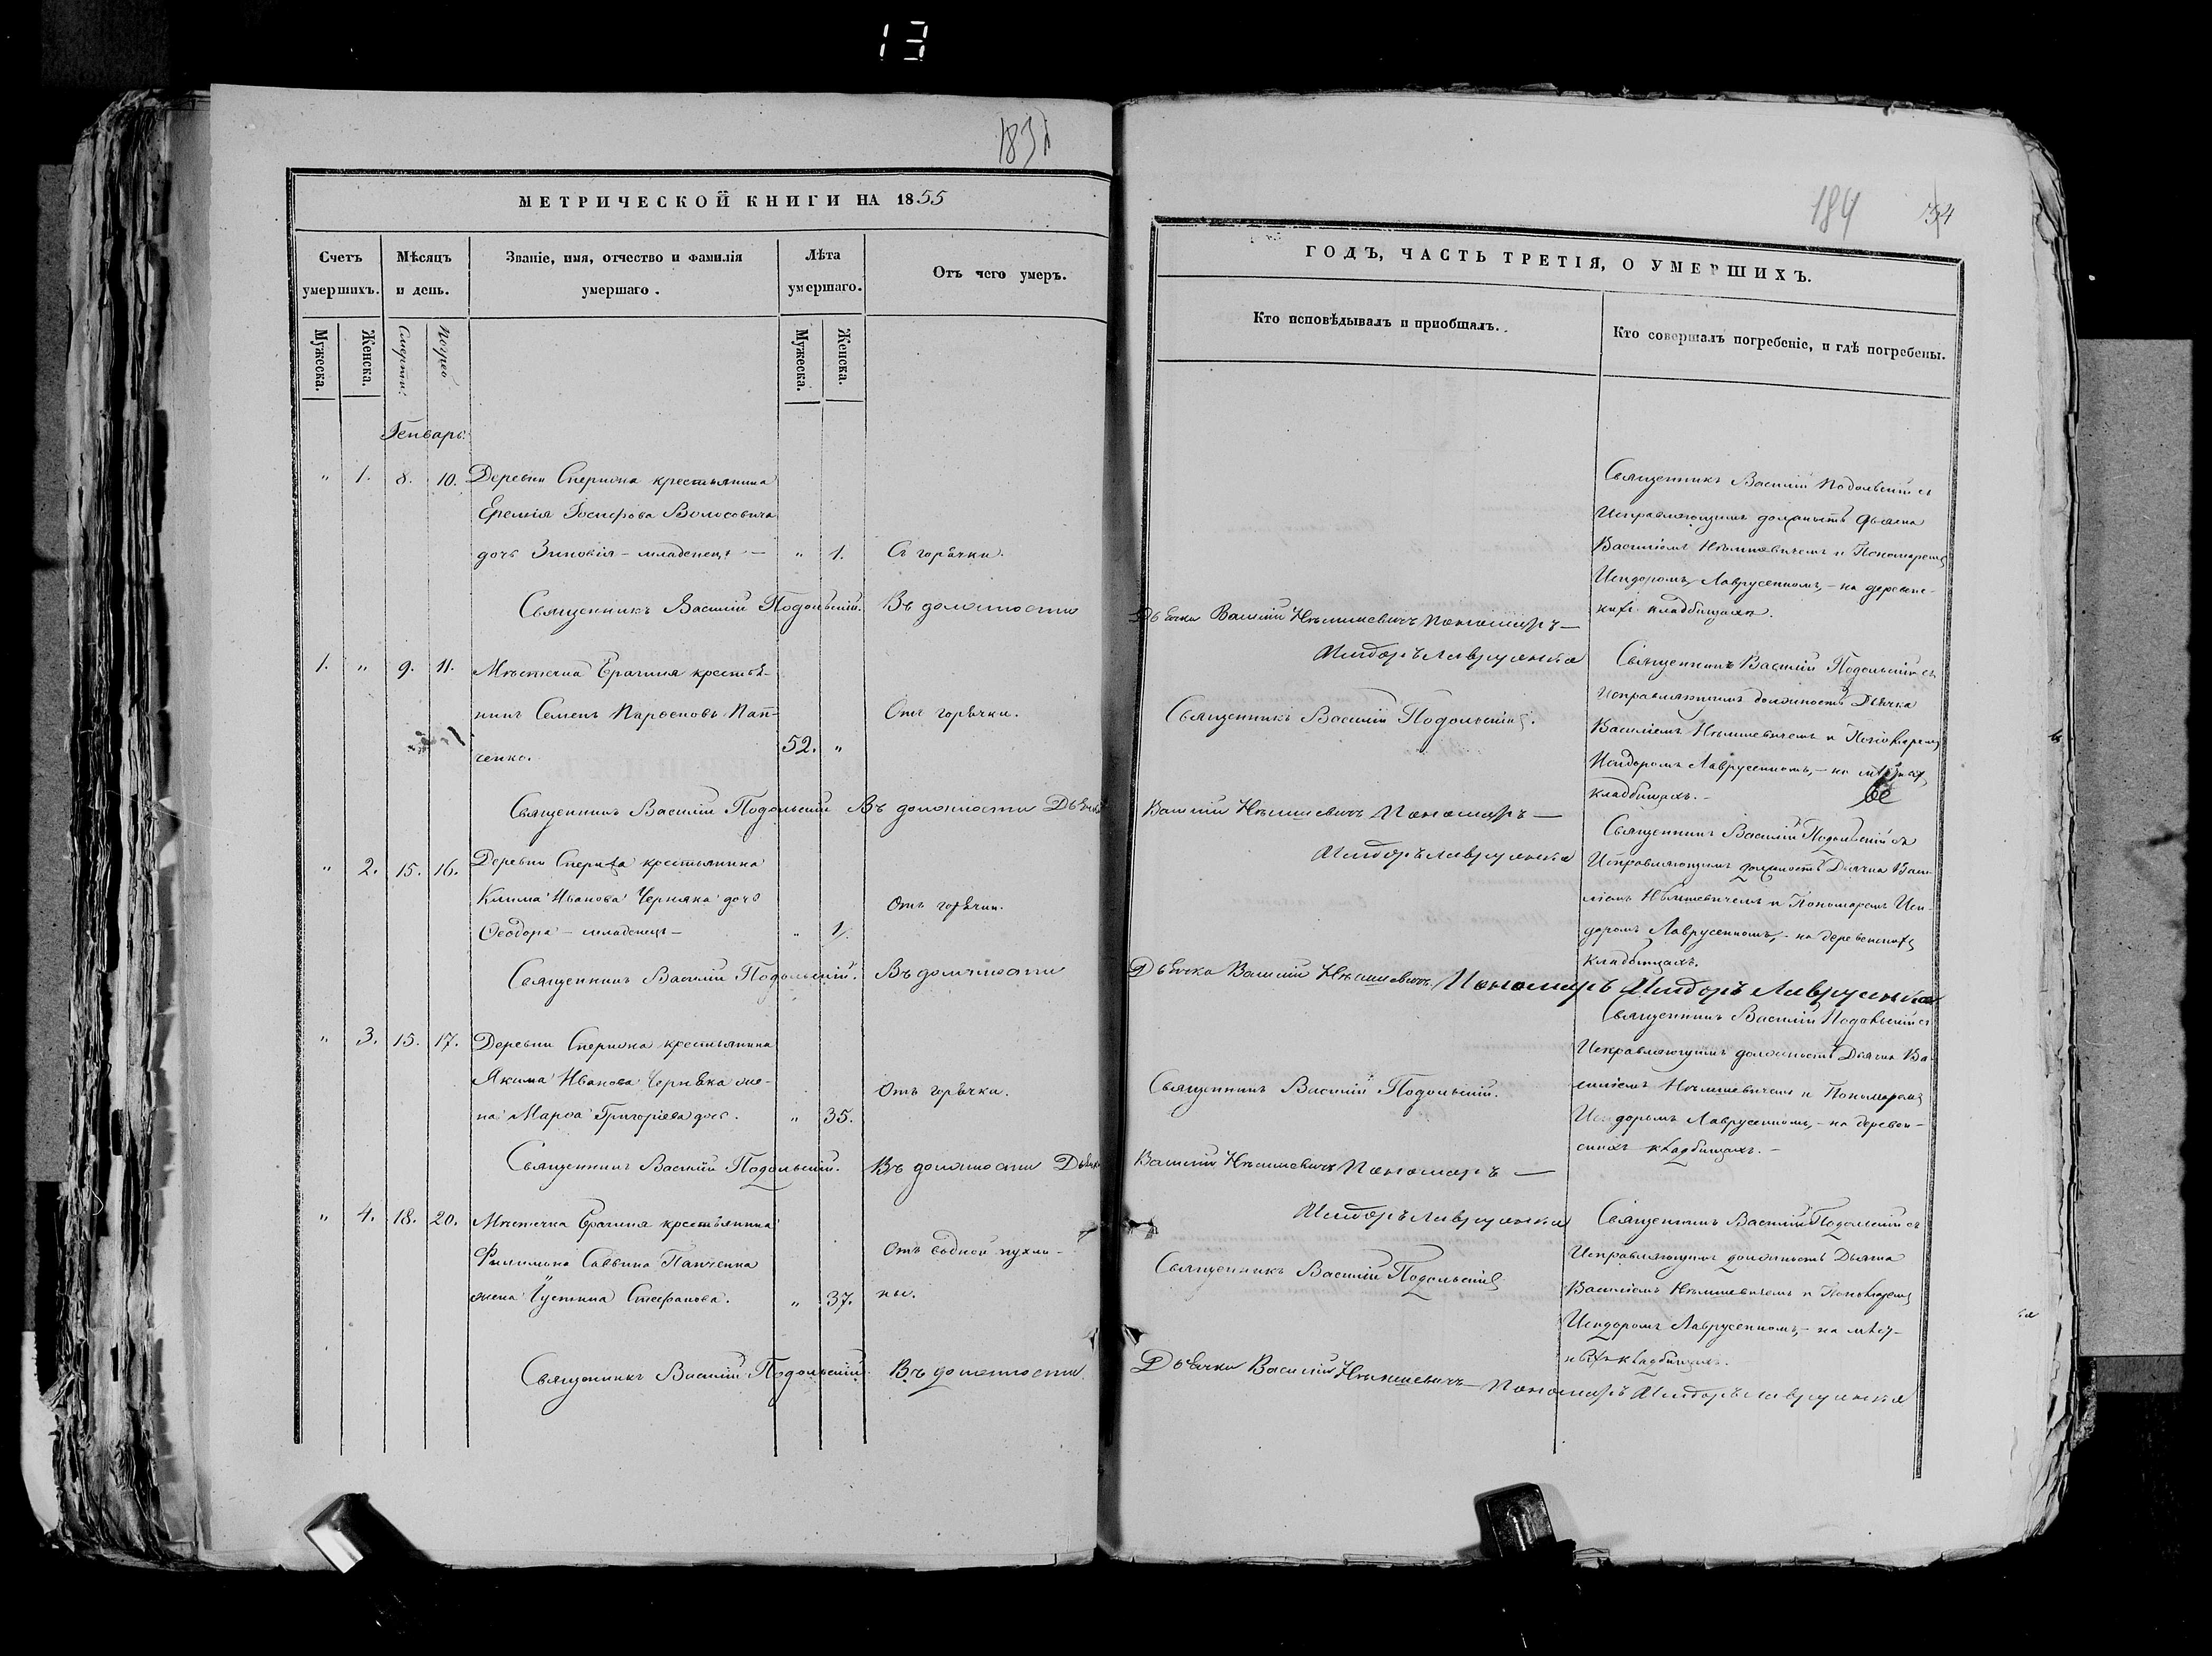 13
183
МЕТРИЧЕСКОЙ КНИГИ НА 1855
Счетъ умершихъ.
Мѣсяцъ и день.
Званіе, имя, отчество и фамилія умершаго.
Лѣта умершаго.
Отъ чего умеръ.
Мужеска.
Женска.
Смерти.
Погреб
Мужеска.
Женска.
Генварь.
" 1. 8. 10. Деревни Сперижа крестьянина
Еремія Іосифова Волосовича
дочь Зиновія - младенецъ - " 1. Съ горѣчки.
Священникъ Василій Подольскій. Въ должности
1. " 9. 11. Мѣстечка Брагиня крестья-
нинъ Семенъ Парѳеновъ Пап- Отъ горѣчки.
ченко. 52. "
Священникъ Василій Подольскій Въ должности Дьячка
" 2. 15. 16. Деревни Сперижа крестьянина
Клима Иванова Черняка дочь Отъ горѣчки.
Ѳеодора - младенецъ - " 1.
Священникъ Василій Подольскій. Въ должности
" 3. 15. 17. Деревни Сперижа крестьянина
Якима Иванова Черняка же- Отъ горѣчки.
на Марѳа Григоріева дочь. " 35.
Священникъ Василій Подольскій. Въ должности Дьячка
" 4. 18. 20. Мѣстечка Брагиня крестьянина
Филимона Саввина Папченка Отъ водной пухли-
жена Іустина Стефанова. " 37. ны.
Священникъ Василій Подольскій. Въ должности
184
ГОДЪ, ЧАСТЬ ТРЕТІЯ, О УМЕРШИХЪ.
Кто исповѣдывалъ и пріобщалъ.
Кто совершалъ погребеніе, и гдѣ погребены.
Священникъ Василій Подольскій съ
Исправляющимъ должность Дьячка
Василіемъ Нѣмшевичемъ и Пономаремъ
Исидоромъ Лаврусенкомъ, - на деревенс-
кихъ кладбищахъ.
Дьячка Василій Нѣмшевичъ Пономарь -
Исидоръ Лаврусенка
Священникъ Василій Подольскій съ
Исправляющимъ должность Дьячка
Священникъ Василій Подольскій.
Василіемъ Нѣмшевичемъ и Пономаремъ
Исидоромъ Лаврусенкомъ, - на
кладбищахъ. -
Василій Нѣмшевичъ Пономарь -
Исидоръ Лаврусенка
Священникъ Василій Подольскій съ
Исправляющимъ должность Дьячка Васи-
ліемъ Нѣмшевичемъ и Пономаремъ Иси-
доромъ Лаврусенкомъ, - на деревенскихъ
кладбищахъ.
Дьячка Василій Нѣмшевичъ Пономарь Исидоръ Лаврусенка
Священникъ Василій Подольскій съ
Исправляющимъ должность Дьячка Ва-
Священникъ Василій Подольскій.
силіемъ Нѣмшевичемъ и Пономаремъ
Исидоромъ Лаврусенкомъ, - на деревен-
скихъ кладбищахъ. -
Василій Нѣмшевичъ Пономарь -
Исидоръ Лаврусенка
Священникъ Василій Подольскій съ
Исправляющимъ должность Дьячка
Священникъ Василій Подольскій
Василіемъ Нѣмшевичемъ и Пономаремъ
Исидоромъ Лаврусенкомъ, - на мѣст-
ныхъ кладбищахъ.
Дьячка Василій Нѣмшевичъ - Пономарь Исидоръ Лаврусенка